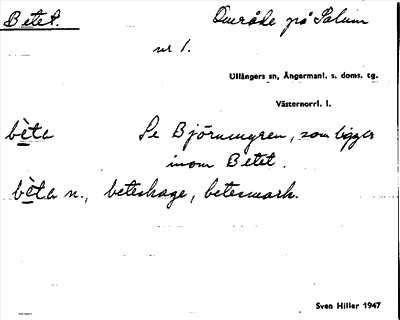 Betet. Område på Salum
nr 1.
Ullångers sn, Ångermanl. s. doms. tg.
Västernorrl. l.
bète Se Björnmyren, som ligger
inom Betet.
bète n., beteshage, betesmark.
Sven Hiller 1947